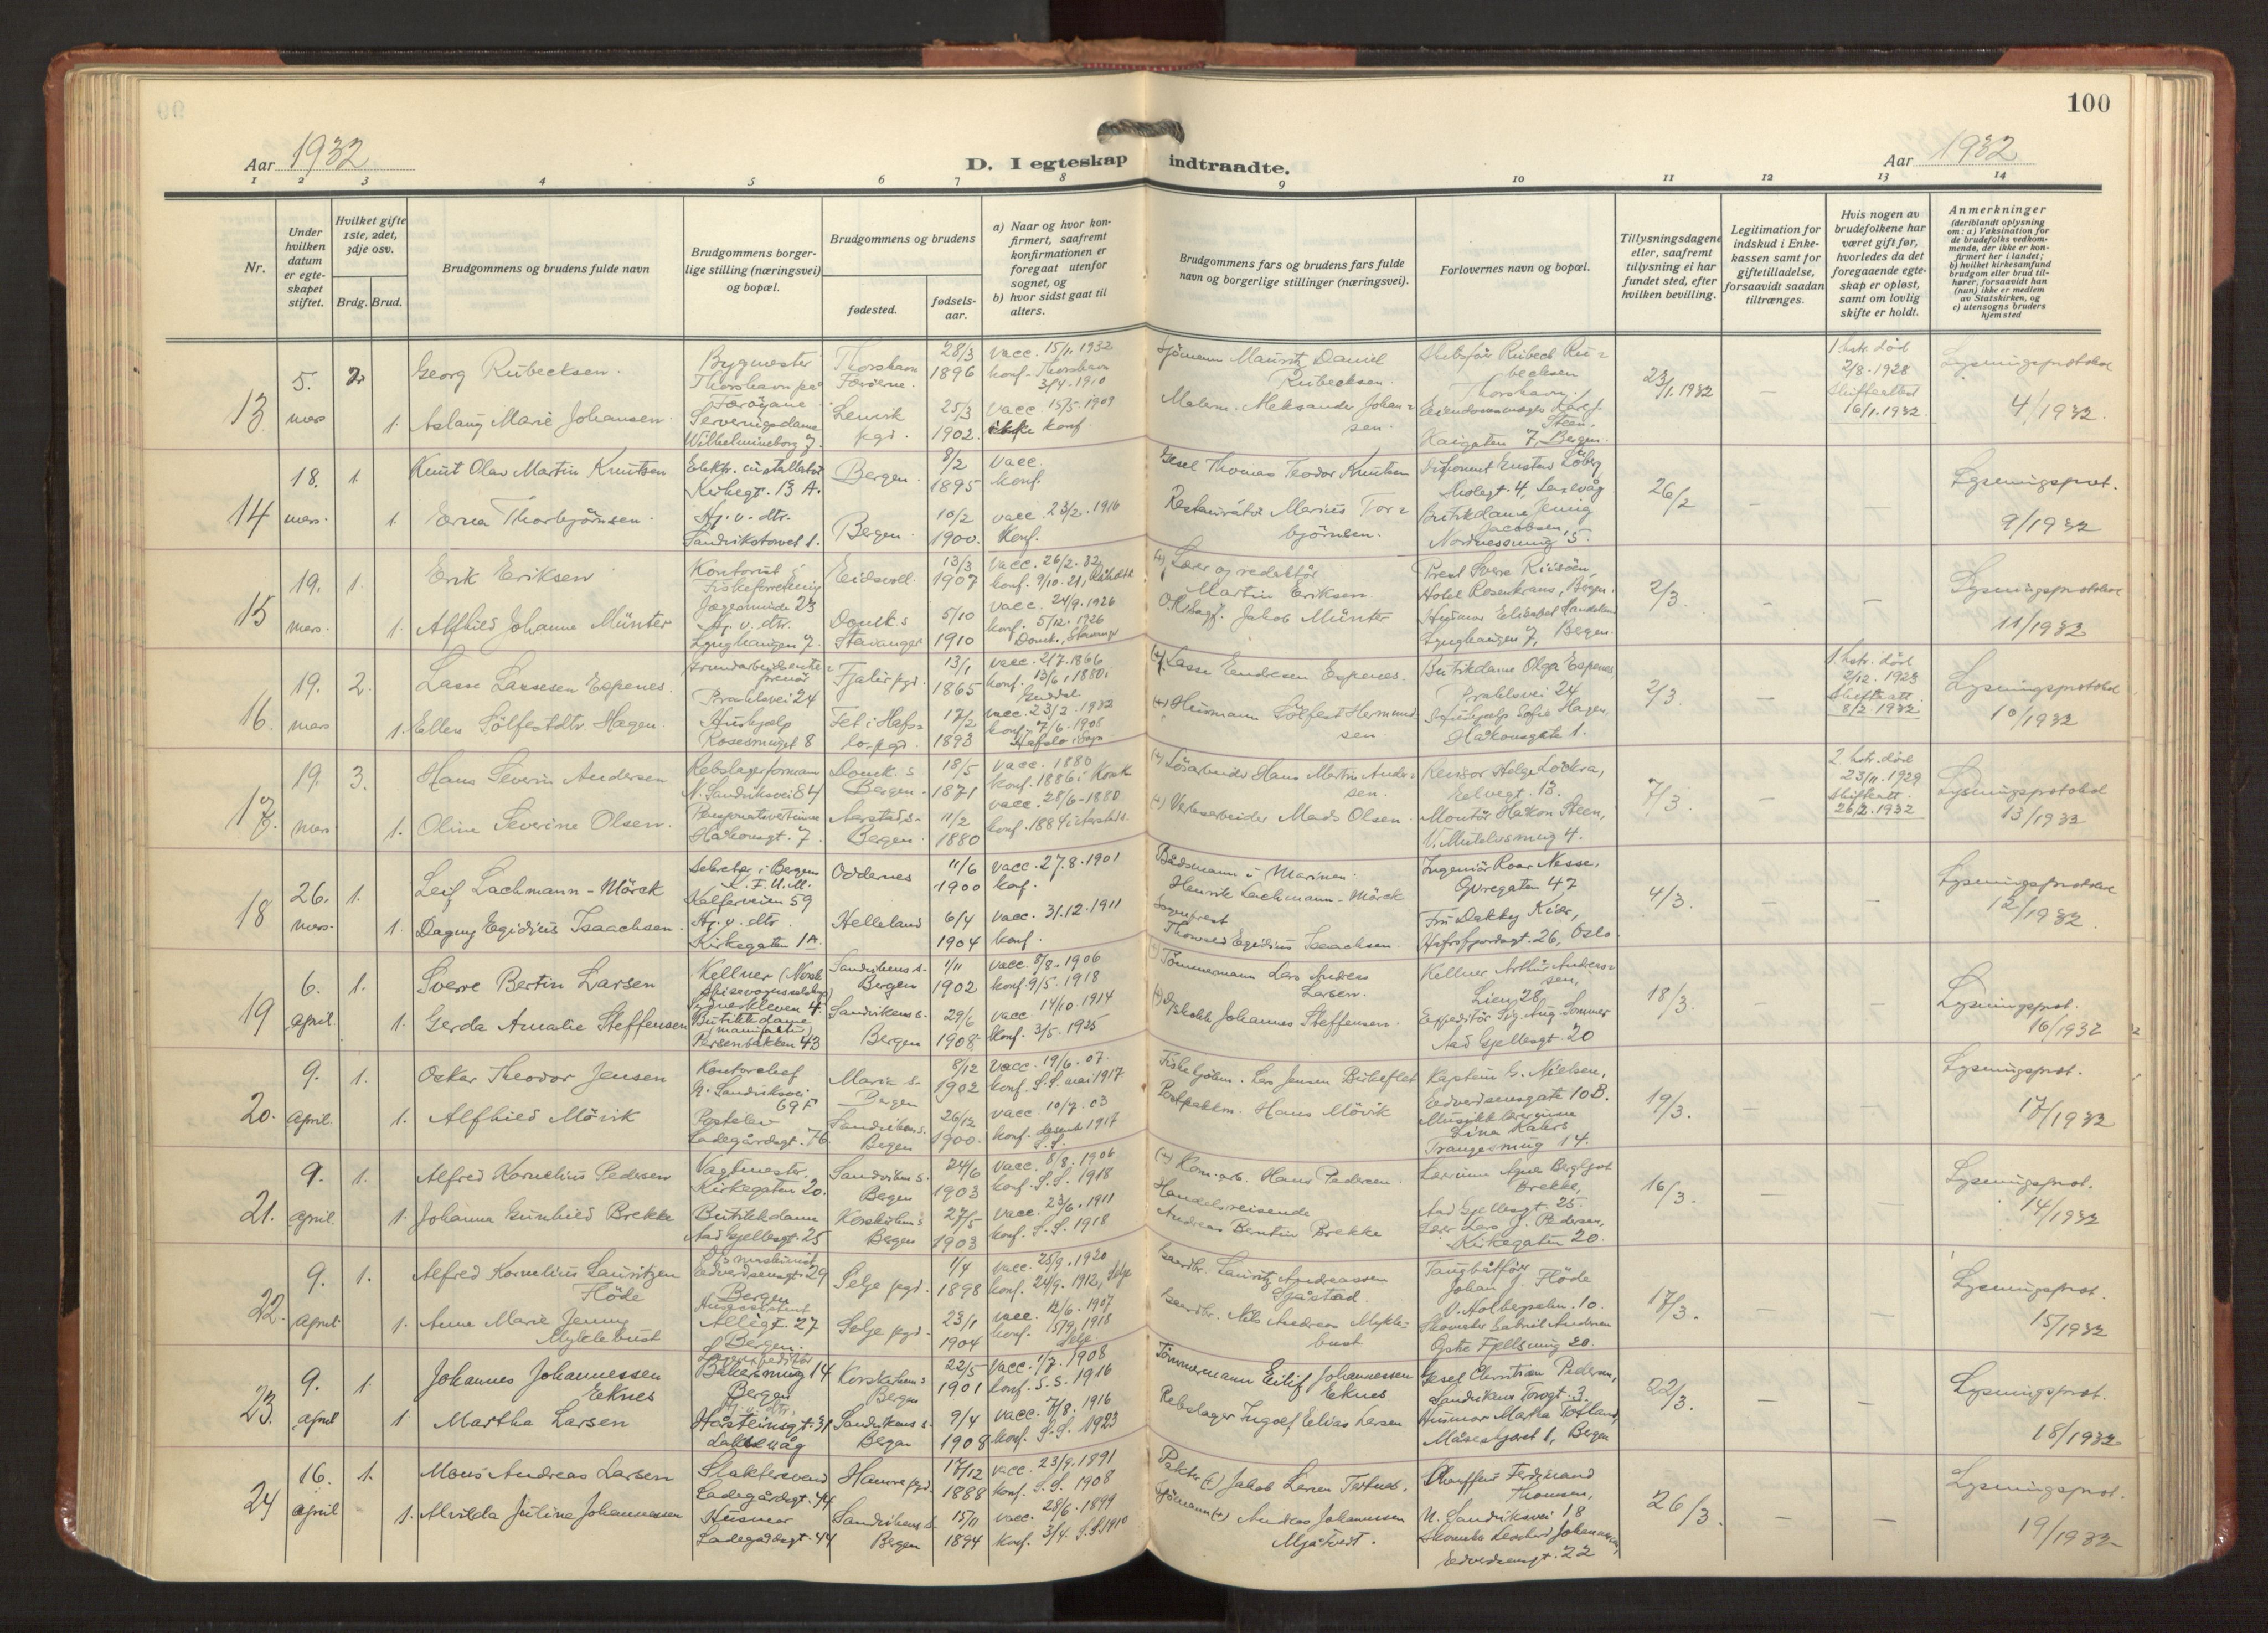 100
Aar 1932
D. I egteskap indtraadte.
Aar 1932
1 2 3 4 5 6 7 8 9 10 11 12 13 14
Nr.
Under hvilken datum er egteskapet stiftet.
Hvilket gifte 1ste, 2det, 3dje osv.
Brdg. Brud.
Brudgommens og brudens fulde navn
Brudgommens borgerlige stilling (næringsvei) og bopæl.
Brudgommens og brudens
fødested.
fødselsaar.
a) Naar og hvor konfirmert, saafremt konfirmationen er foregaat utenfor sognet, og
b) hvor sidst gaat til alters.
Brudgommens fars og brudens fars fulde navn og borgerlige stillinger (næringsvei).
Forlovernes navn og bopæl.
Tillysningsdagene eller, saafremt tillysning ei har fundet sted, efter hvilken bevilling.
Legitimation for indskud i Enkekassen samt for giftetilladelse, forsaavidt saadan tiltrænges.
Hvis nogen av brudefolkene har været gift før, hvorledes da det foregaaende egteskap er opløst, samt om lovlig skifte er holdt.
Anmerkninger
(deriblandt oplysning om: a) Vaksination for de brudefolks vedkommende, der ikke er konfirmert her i landet; b) hvilket kirkesamfund brudgom eller brud tilhører, forsaavidt han (hun) ikke er medlem av Statskirken, og c) utensogns bruders hjemsted
13 5. mars 2. Georg Rubecksen.
Bygmester Thorshavn på Færøyane
Thorshavn Færøerne. 28/3 1896
vacc. 15/1. 1932 konf. Thorshavn 3/4-1910
Sjømann Mauritz Daniel Rubecksen.
Thorshavn.
23/1.1932 –
1. hstr. død 2/8-1928 Skifteattest 16/1.1932
Lysningsprotokol 4/1932.
1. Aslaug Marie Johansen.
Serveringsdame Wilhelmineborg 7.
Lenvik pgd. 25/3 1902.
vacc. 15/5.1909 ikke konf.
Malerm. Aleksander Johansen.
Steen, Kaigaten 7, Bergen.
14 18. mars. 1. Knut Olav Martin Knutsen
Elektr. installatør Kirkegt. 13 A.
Bergen. 8/2 1895
vacc. konf.
Thomas Teodor Knutsen
Disponent Gustav Løberg, Laksevåg
26/2 – –
Lysningsprot. 9/1932
1. Erna Thorbjørnsen.
Hj. v. dtr. Sandvikstorvet 1.
Bergen. 10/2 1900.
vacc. 23/2.1916 Konf.
Restauratør Marius Torbjørnsen.
Butikdame Jenny Jacobsen, Nordnessmug 5.
15 19. mars. 1. Erik Eriksen
Kontorist i Fiskeforretning 23
Eidsvoll. 13/3 1907
vacc. 26/2.32 konf. 9/10.21,
(+) Lærer og redaktør Martin Eriksen.
Prest Sverre Riisøen, Hotel Rosenkrans, Bergen.
2/3. – –
Lysningsprotokol 11/1932
1. Alfhild Johanne Münter
Hj. v. dtr. Lynghaugen 7.
Domk.s Stavanger 5/10 1910
vacc. 24/9.1926 konf. 5/12.1926 Domk., Stavanger
Jakob Münter
Lynghaugen 7, Bergen.
16. 19. mars 2. Lasse Lassesen Espenes.
24
Fjaler pgd. 13/1 1865
vacc. 2/7.1866 konf. 13/6.1880 i Guddal
(+) Lasse Eendresen Espenes.
Butikdame Olga Espenes, 24
2/3. –
1. hstr. død 2/12.1923 Skifteatt. 8/2.1932
Lysningsprotokol 10/1932
1. Ellen Sølfestdtr. Hagen.
Hushjelp Rosesmuget 8
Fet i Hafslo pgd. 17/2 1893
vacc. 23/2.1932 konf. 7/6.1908 Hafslo i Sogn
(+) Husmann Sølfest Hermundsen.
Hushjelp Sofie Hagen, Håkonsgate 1.
17. 19. mars. 3. Hans Severin Andersen
Rebslagerformann N. Sandviksvei 84
Domk. s Bergen. 18/5 1871
vacc. 1880 konf. 1886 i Korsk.
(+) Løsarbeider Hans Martin Andersen.
Revisor Helge Lockra,
7/3. –
2. hstr. død 23/11.1929 Skifteatt. 26/2.1932
Lysningsprotokol 13/1932
1. Oline Severine Olsen.
Pensjonatsvertinne Håkonsgt. 7
Aarstad s. Bergen 11/2 1880
vacc. 28/6-1880. konf. 1884 i Aarstad s.
(+) Verksarbeider Mads Olsen.
Montør Håkon Steen,
18 26. mars. 1. Leif Lachmann-Mørck
Sekretær i Bergens K.F.U.M. Kalfarveien 59
Oddernes 11/6 1900
vacc. 27.8.1901 konf.
Bådsmann i Marinen. Henrik Lachmann-Mørck
Ingeniør Roar Nesse, Øvregaten 47
4/3. – –
Lysningsprotokol 12/1932.
1. Dagny Egidius Isaachsen.
Hj. v. dtr. Kirkegaten 1A.
Helleland 6/4 1904
vacc. 31.12.1911 konf.
Sogneprest Thorvald Egidius Isaachsen.
Fru Dakky Kiær, Hafrsfjordsgt. 26, Oslo.
19 6. april. 1. Sverre Bertin Larsen
Kellner (Norsk Spisevognsselskap)
Sandvikens s. Bergen 1/11 1902
vacc. 8/8.1906 konf. 9/5.1918
(+) Tømmermann Lars Andreas Larsen.
Kellner Arthur Andreassen, Lien 28
18/3. – –
Lysningsprot. 16/1932
1. Gerda Amalie Steffensen
Butikkdame (manufaktur) Persenbakken 43
Sandvikens s. Bergen 29/6 1908.
vacc. 14/10.1914 konf. 3/5.1925
(+) Johannes Steffensen.
Expeditør Sig. Aug. Sommer Aad Gjellesgt. 20
20. 9. april. 1. Oskar Theodor Jensen
Kontorchef N. Sandviksvei 69 F
Maria s. Bergen 8/12 1902
vacc. 19/6.07. konf. S.S. mai 1917
Lars Jensen Birkeflet
Kaptein G. Nielsen, Edvardsensgate 10 B.
19/3. – –
Lysningsprot. 17/1932
1. Alfhild Møvik
Postelev Ladegårdsgt. 76
Sandvikens s. Bergen 26/12 1900.
vacc. 10/7.03 konf. desember 1917 S.S.
Postpakkm. Hans Møvik
Musikklærerinne 14.
21. 9. april. 1. Alfred Kornelius Pedersen
Vagtmester. Kirkegaten 20.
Sandvikens s. Bergen 24/6 1903
vacc. 8/8.1906 konf. S.S. 1918
(+) Kom. arb. Hans Pedersen.
Lærerinne Agne Bergljot Brekke, Aad Gjellesgt. 25.
16/3. – –
Lysningsprot. 14/1932
1. Johanna Gunhild Brekke
Butikkdame Aad Gjellesgt. 25
Korskirkens s. Bergen 27/5 1903
vacc. 23/6.1911 konf. S.S. 1918
Handelsreisende Andreas Bentin Brekke
Lærer Lars J. Pedersen, Kirkegaten 20.
22. 9. april. 1. Alfred Kornelius Lauritzen Flöde
Edvardsensgt. 29 Bergen
Selje pgd. 1/4 1898
vacc. 25/9.1920 konf. 24/9.1912, Selje
Gaardbr. Lauritz Andreassen Sjåstad.
Taugbåtfører Johan J. Flöde 10.
17/3. – –
Lysningsprot. 15/1932
1. Anne Marie Jenny Myklebust
Husassistent Allégt. 27 Bergen.
Selje pgd. 23/1 1904
vacc. 12/6.1907 konf. 15/9.1918 Selje.
Gaardbr. Nils Andreas Myklebust
Skomaker Gabriel Andersen Øvre Fjellsmug 20.
23. 9. april 1. Johannes Johannessen Eeknes
Lagerexpeditør Bakersmug 14 Bergen
Korskirkens s. Bergen 22/5 1901
vacc. 1/7.1908 konf. S.S. 1916
Tømmermann Eilif Johannessen Eeknes
Gesel Christian Pedersen, Sandvikens Torvgt. 3.
22/3. – –
Lysningsprot. 18/1932
1 Martha Larsen
Hj. v. dtr. Håsteinsgt. 31 Laksevåg
Sandvikens s. Bergen 9/4 1908
vacc. 7/8.1916 konf. S.S. 1923
Rebslager Ingolf Elias Larsen
Husmor Marta Totland, Måseskjæret 1, Bergen
24 16. april 1. Mons Andreas Larsen
Slaktersvend Ladegårdsgt. 44
Hamre pgd. 17/12 1888
vacc. 23/9.1891 konf. S.S. 1908
Pakker (+) Jakob Larsen Tertnes.
Chauffeur Ferdinand Thomsen, N. Sandviksvei 18
26/3. – –
Lysningsprot. 19/1932
1. Alvilda Juline Johannessen
Husmor Ladegårdsgt. 44
Sandvikens s. Bergen 15/11 1894
vacc. 28/6.1899 konf. 3/4. S.S. 1910
Sjømann (+) Andreas Johannessen Mjåtveit.
Skomaker Leonhard Johannessen, Edvardsensgt. 22